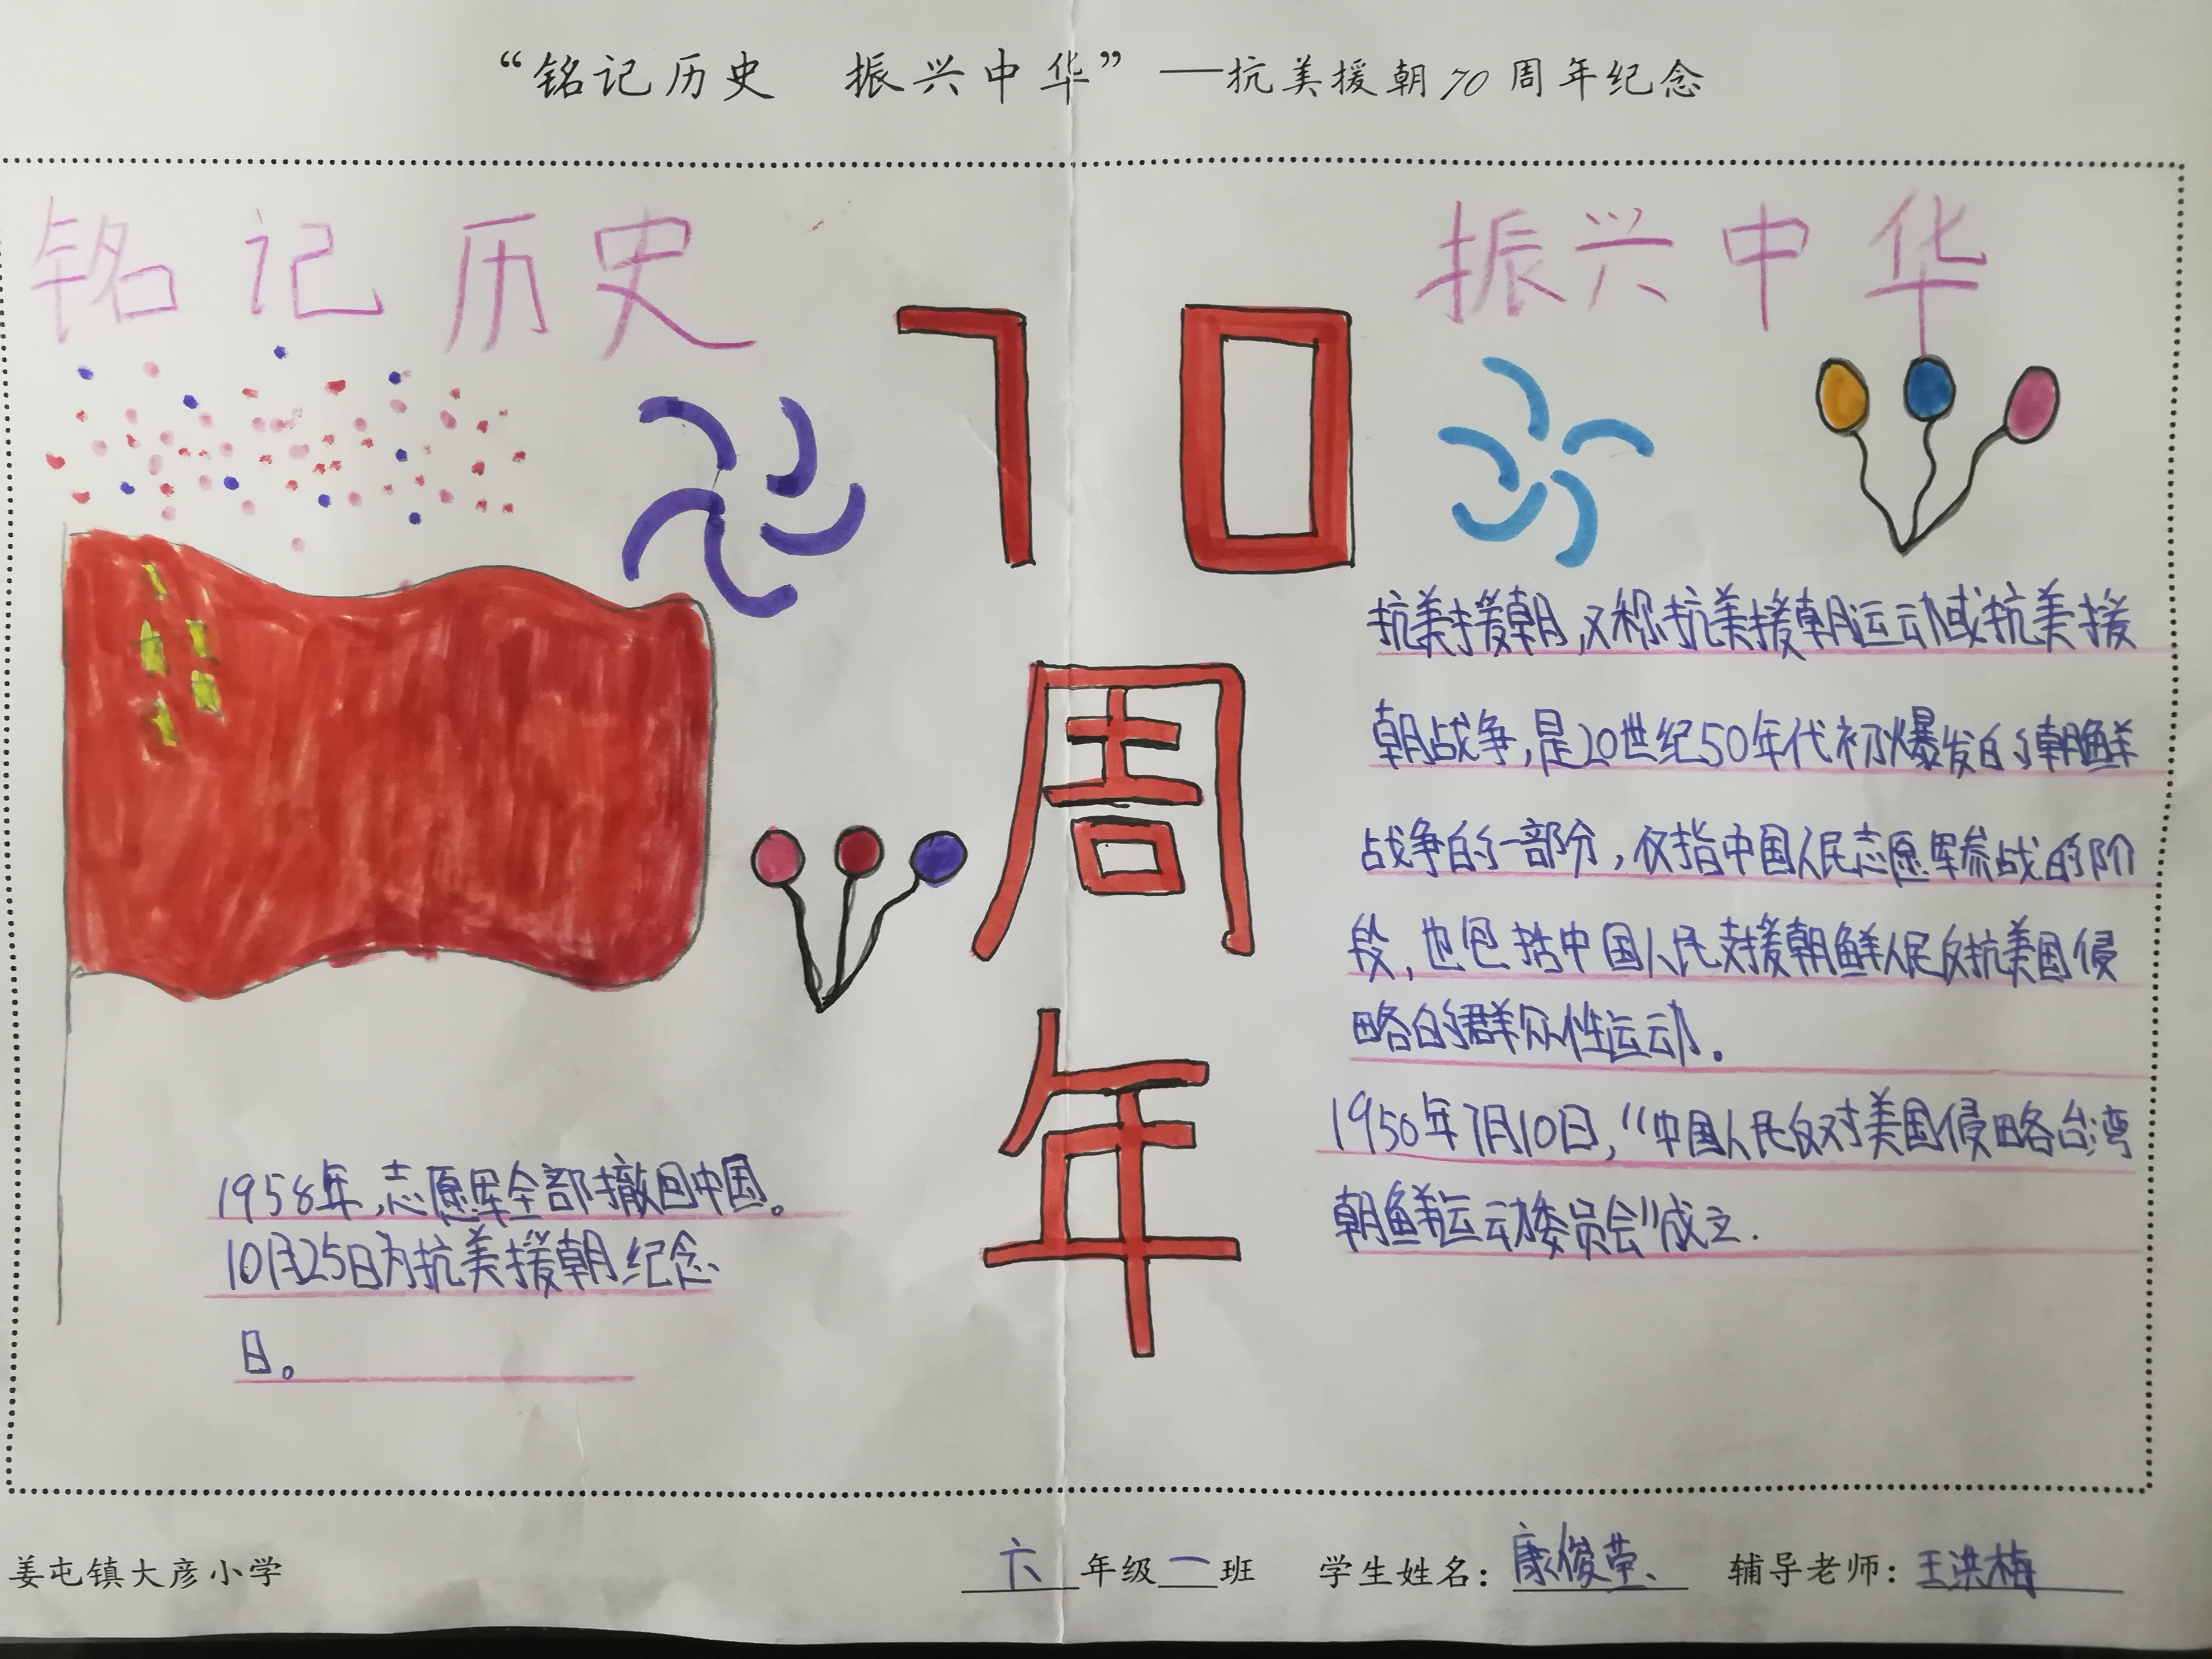 “铭记历史 振兴中华”——抗美援朝70周年纪念
铭记历史
振兴中华
70
周
年
抗美援朝,又称抗美援朝运动或抗美援
朝战争,是20世纪50年代初爆发的朝鲜
战争的一部分,仅指中国人民志愿军参战的阶
段,也包括中国人民支援朝鲜人民反抗美国侵
略的群众性运动。
1950年7月10日,“中国人民反对美国侵略台湾
朝鲜运动委员会”成立.
1958年,志愿军全部撤回中国。
10月25日为抗美援朝纪念
日。
姜屯镇大彦小学
六年级一班 学生姓名：康俊荣 辅导老师：王洪梅